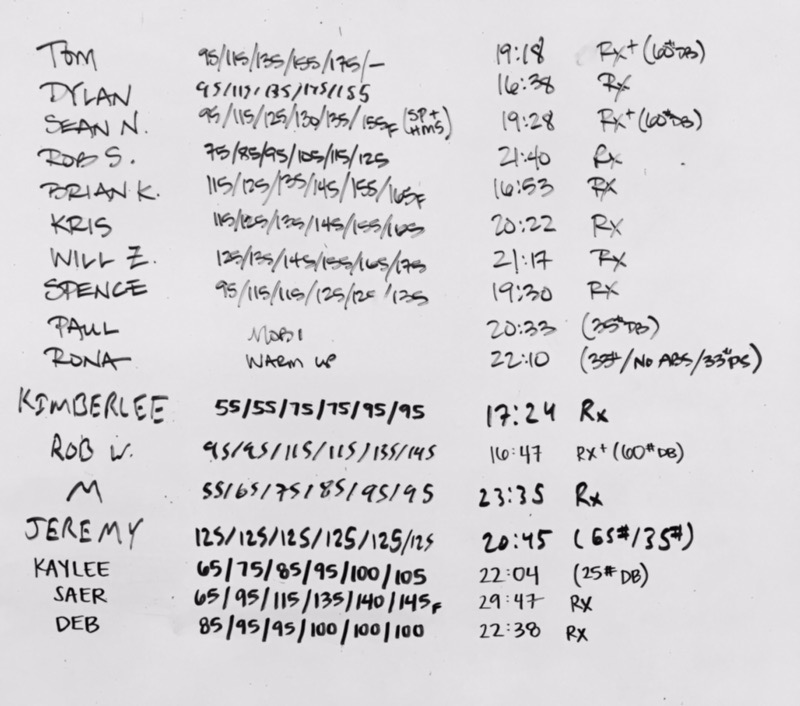 TOM 95/115/135/155/175/— 19:18 Rx+ (60# DB)
DYLAN 95/117/135/145/155 16:38 Rx
SEAN N. 95/115/125/130/135/155F (SP+ HMS) 19:28 Rx+ (60# DB)
ROB S. 75/85/95/105/115/125 21:40 Rx
BRIAN K. 115/125/135/145/155/165F 16:53 Rx
KRIS 115/125/135/145/155/165 20:22 Rx
WILL Z. 125/135/145/155/165/175 21:17 Rx
SPENCE 95/115/115/125/125/135 19:30 Rx
PAUL MOBI 20:33 (35# DB)
RONA WARM UP 22:10 (35#/NO ABS/33# DS)
KIMBERLEE 55/55/75/75/95/95 17:24 Rx
ROB W. 95/95/115/115/135/145 16:47 RX+ (60# DB)
M 55/65/75/85/95/95 23:35 Rx
JEREMY 125/125/125/125/125/125 20:45 (65#/35#)
KAYLEE 65/75/85/95/100/105 22:04 (25# DB)
SAER 65/95/115/135/140/145F 29:47 RX
DEB 85/95/95/100/100/100 22:38 RX